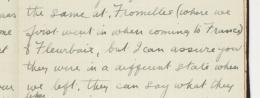 the same at, Fromelles (where we
first went in when coming to France)
& Fleurbaix, but I can assure you
they were in a different state when
we left, they can say what they